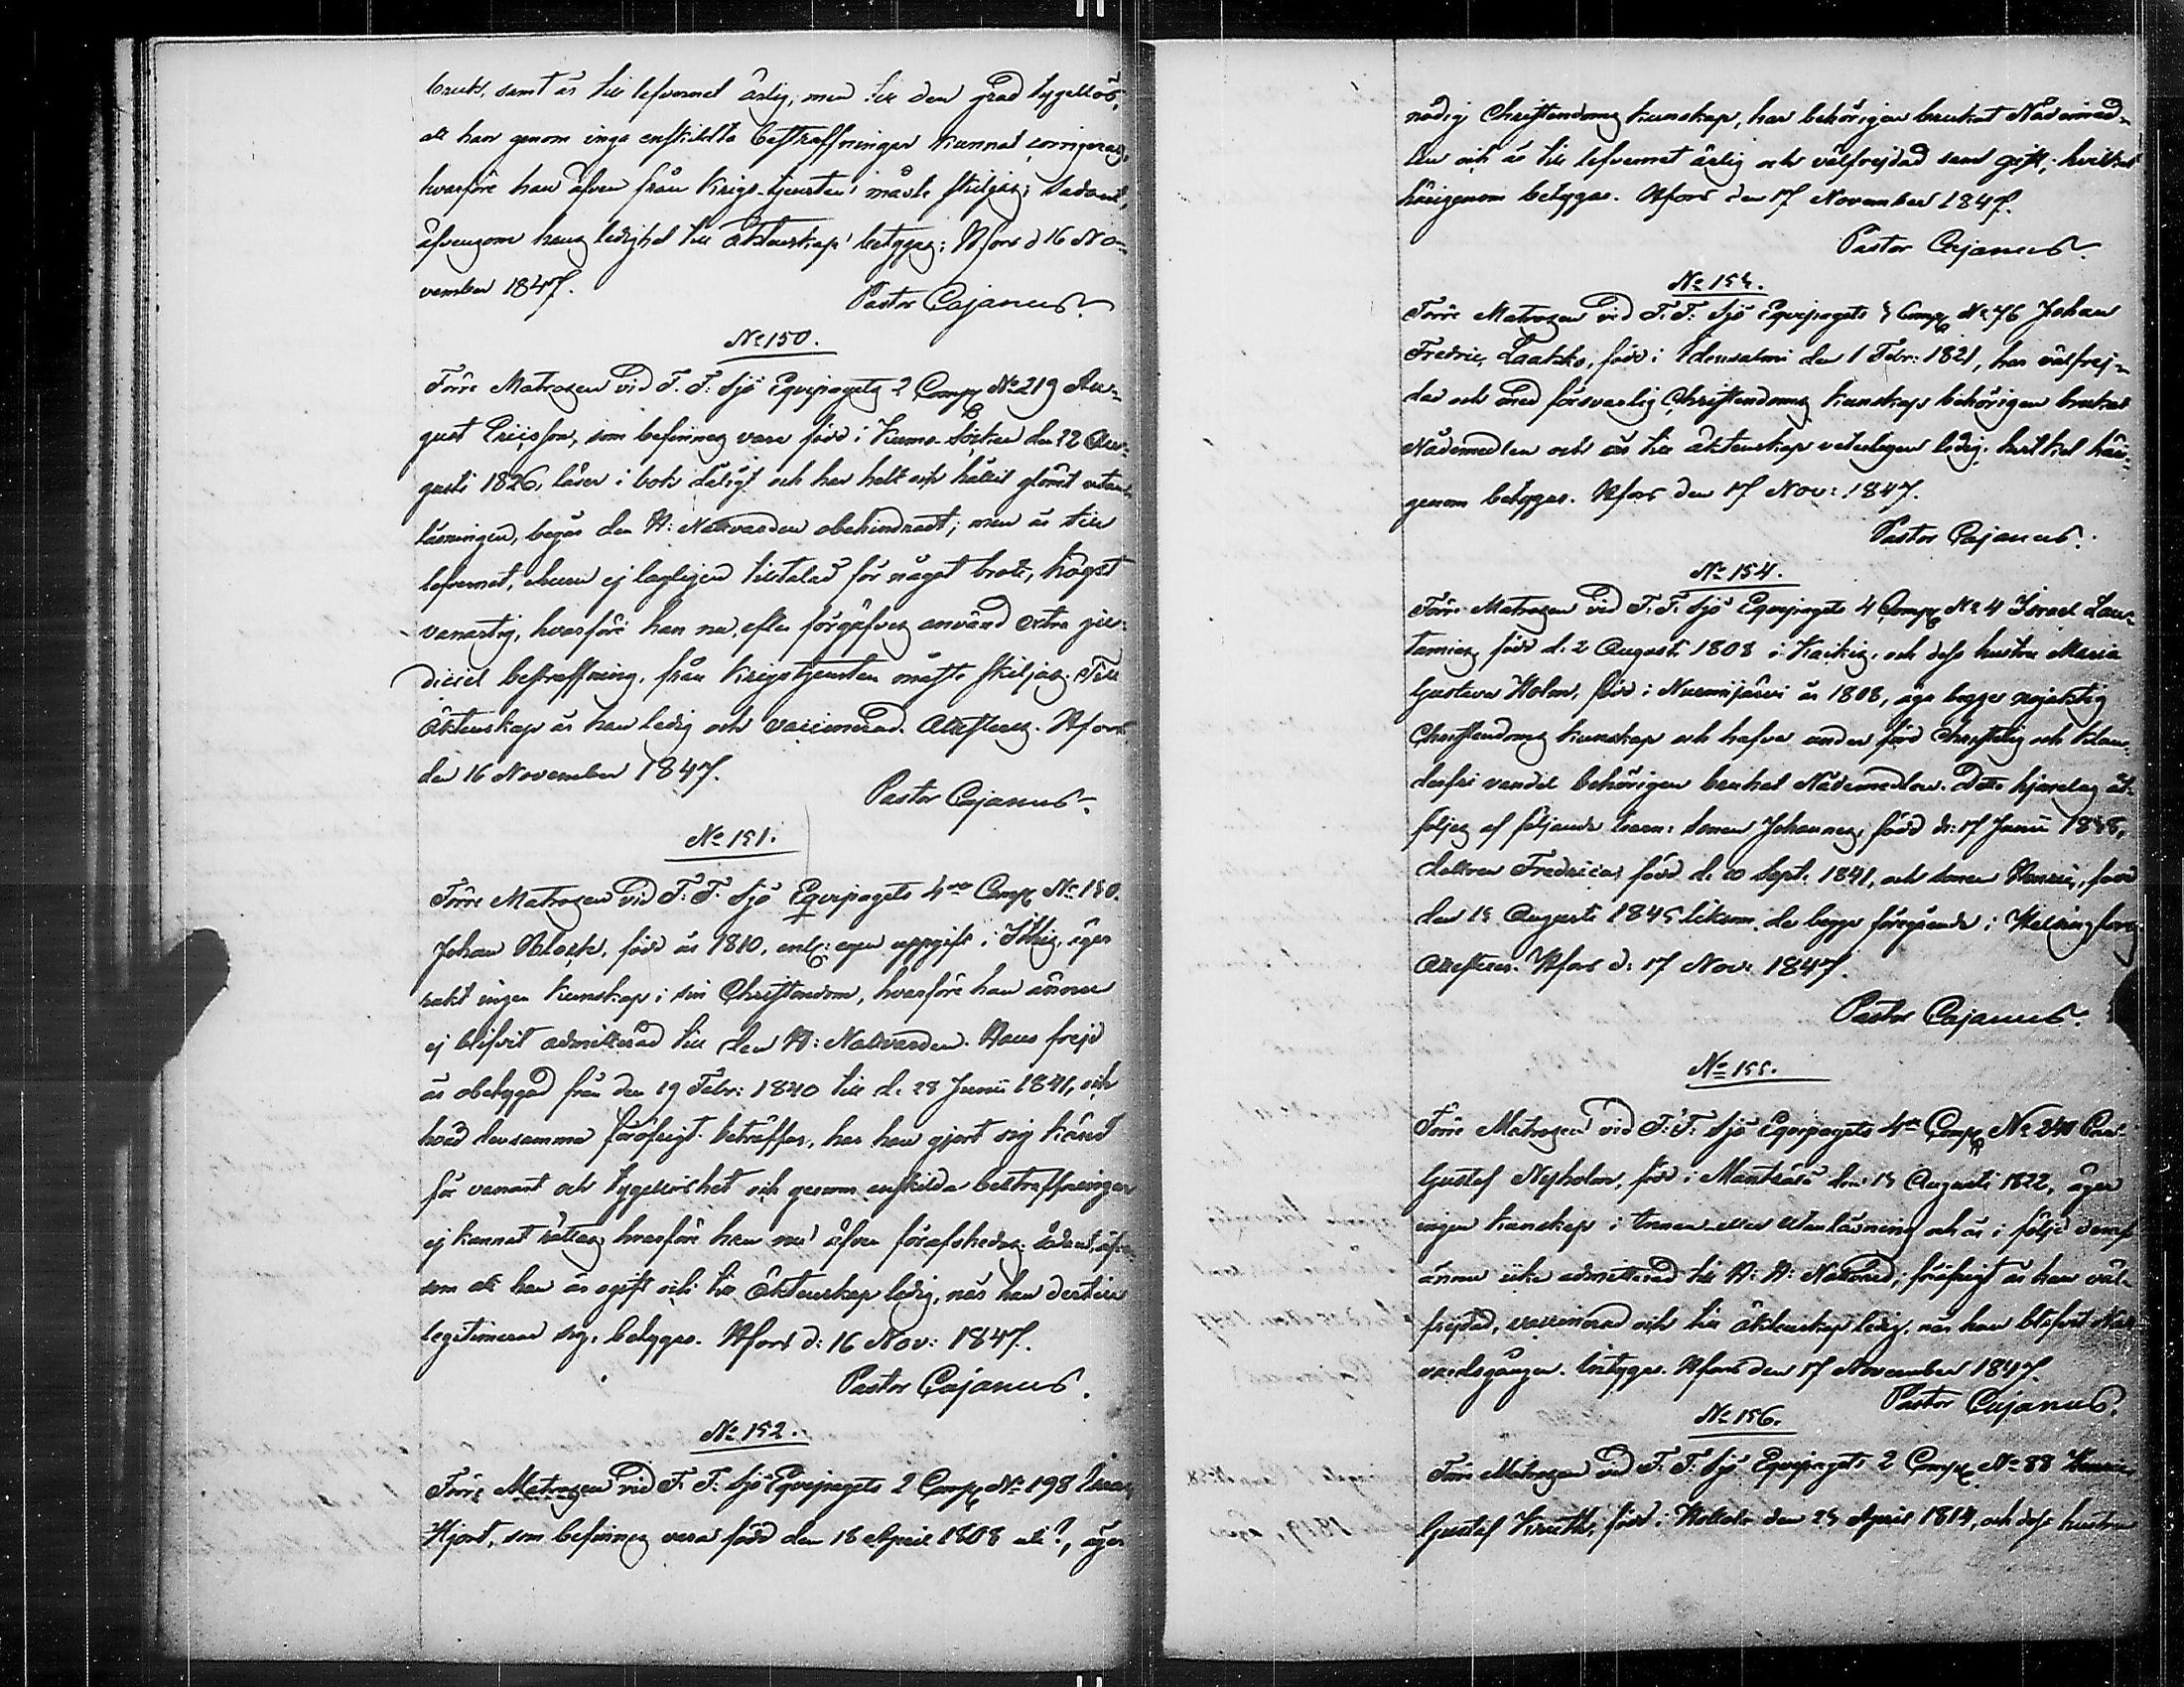 bruk, samt är till lefvernet ärlig, men till den grad tygellös,
att han genom inga enskildta bestraffningar kunnat corrigeras,
hvarföre han äfven från Krigs-tjensten måste skiljas; sådant,
äfvensom hans ledighet till äktenskap betygas; Hfors d 16 No-
vember 1847.
Pastor Cajanus
No 150.
Förre Matrosen vid F. F. Sjö Equipagets 2 Comp No 219 Au-
gust Ericsson, som befinnes vara född i Kumo Socken den 22 Au-
gusti 1826, läser i bok dåligt och har helt och hållit glömt utan-
läsningen, begår den H: Nattvarden obehindradt; men är till
lefvernet, ehuru ej lagligen tilltalad för något brott, högst
vanartig, hvarföre han nu, efter förgäfves använd extra ju-
diciel bestraffning, från Krigstjensten måste skiljas. Till
äktenskap är han ledig och vaccinerad. Attesteras. Hfors
den 16 November 1847.
Pastor Cajanus
No 151.
Förre Matrosen vid F. F. Sjö Equipagets 4de Comp No 150.
Johan Block, född år 1810, enl: egen uppgift i Itkis, äger
rakt ingen kunskap i sin Christendom, hvarföre han ännu
ej blifvit admitterad till den H: Nattvarden. Hans frejd
är obetygad från den 19 Febr: 1840 till d. 28 Junii 1841, och
hvad densamma föröfrigt beträffar, har han gjort sig känd
för vanart och tygellöshet och genom enskilda bestraffningar
ej kunnat rättas hvarföre han nu äfven förafskedas; sådant, äfven-
som att han är ogift och till äktenskap ledig, när han dertill
legitimerar sig, betygas. Hfors d: 16 Nov: 1847.
Pastor Cajanus.
No 152.
Förre Matrosen vid F. F. Sjö Equipagets 2 Comp No 198
Hjort, som befinnes vara född den 18 April 1808 uti ?, äger
nödig Christendoms kunskap, har behörigen brukat Nådemed-
len och är till lefvernet ärlig och välfrejdad samt gift; hvilket
härigenom betygas. Hfors den 17 November 1847.
Pastor Cajanus.
No 153.
Förre Matrosen vid F. F. Sjö Equipagets Comp No 76 Johan
Fredric Laakko, född i Idensalmi den 1 Febr: 1821, har välfrej-
dad och med försvarlig Christendoms kunskap behörigen brukat
Nådemedlen och är till äktenskap veterligen ledig; hvilket här-
genom betygas. Hfors den 17 Nov: 1847.
Pastor Cajanus.
No 154.
Förre Matrosen vid F. F. Sjö Equipagets 4 Comp No 4 Israel Lau-
född d. 2 August 1808 i Kaikis, och dess hustru Maria
Gustava Holm, född i Nurmijärvi år 1808, äga begge nöjaktig
Christendoms kunskap och hafva under förd Christelig och klan-
derfri vandel behörigen brukat Nådemedlen. Detta hjonelag åt-
följes af följande barn: sonen Johannes, född d: 17 Junii 1838,
dottren Fredrica, född d. 20 Sept. 1841, och sonen Henric, född
den 15 Augusti 1845 liksom de begge föregående i Helsingfors.
Attesteras. Hfors d: 17 Nov: 1847.
Pastor Cajanus.
No 155.
Förre Matrosen vid F. F. Sjö Equipagets 4de Comp No 240 Carl
Gustaf Nyholm, född i Mäntsälä den 15 Augusti 1822, äger
ingen kunskap i innan- eller utanläsning och är i följd deraf
ännu icke admitterad till H: H: Nattvard; föröfrigt är han väl-
frejdad, vaccinerad och till äktenskap ledig, när han blifvit Natt-
vardsgången. Betygas. Hfors den 17 November 1847.
Pastor Cajanus.
No 156.
Förre Matrosen vid F. F. Sjö Equipagets 2 Comp No 88 Henric
Gustaf Kruth, född i Hollola den 25 April 1814, och dess hustru